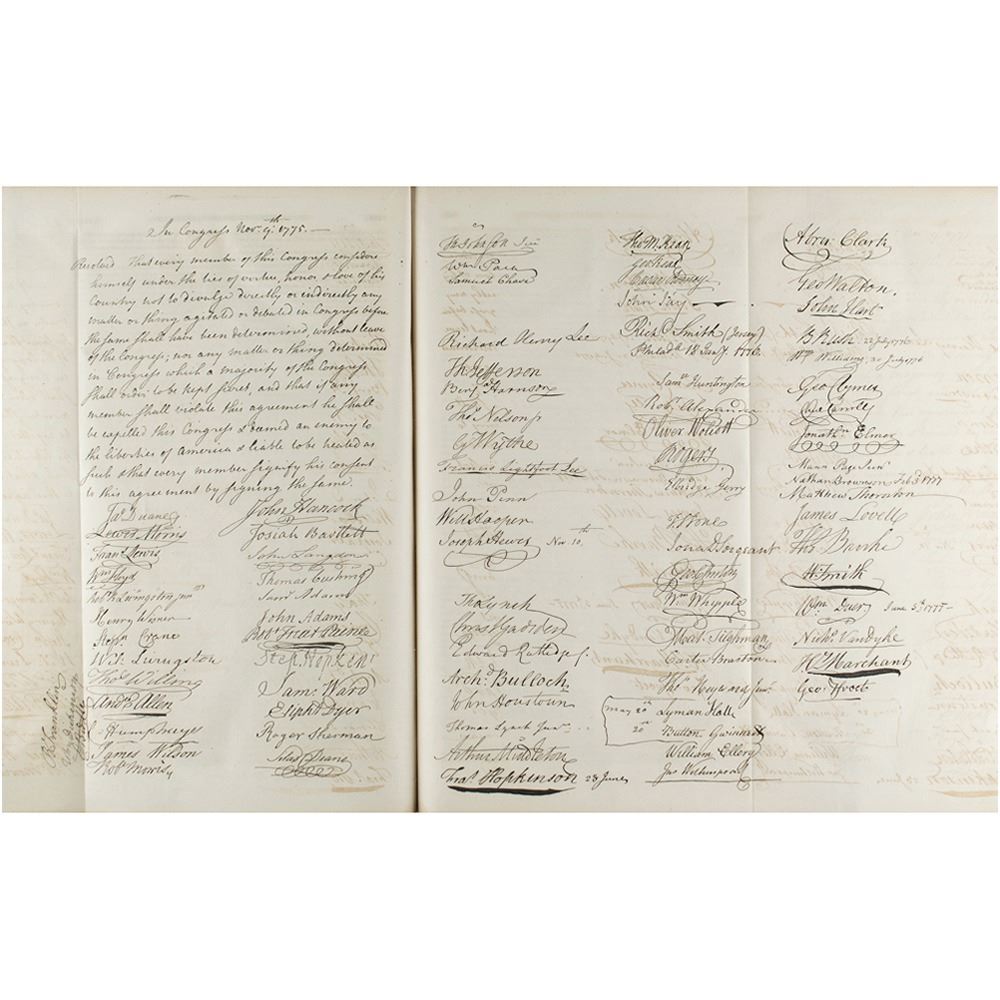 In Congress Nov.r 9.th 1775. —
Resolved That every member of this Congress considers
himself under the ties of virtue, honor & love of his
Country not to divulge directly or indirectly any
matter or thing agitated or debated in Congress before
the same shall have been determined, without leave
of the Congress; nor any matter or thing determined
in Congress which a majority of the Congress
shall order to be kept secret, and that if any
member shall violate this agreement he shall
be expelled this Congress & deemed an enemy to
the liberties of America & liable to be treated as
such & that every member signify his consent
to this agreement by signing the same.
Ja.s Duane
Lewis Morris
Fran.s Lewis
Wm Floyd
Rob.t R Livingston jun.r
Henry Wisner
Step. Crane
Wil: Livingston
Tho.s Willing
And.w Allen
C Humphreys
James Wilson
Rob.t Morris
B Franklin
John Hancock
Josiah Bartlett
John Langdon
Thomas Cushing
Sam.l Adams
John Adams
Rob.t Treat Paine
Step. Hopkins
Sam: Ward
Eliph.t Dyer
Roger Sherman
Silas Deane
Th Johnson Jun
Wm Paca
Samuel Chase
Richard Henry Lee
Th Jefferson
Benj.a Harrison
Tho.s Nelson jr
G Wythe
Francis Lightfoot Lee
John Penn
Will Hooper
Joseph Hewes Nov. 10.th
Tho Lynch
Christ Gadsden
Edward Rutledge
Arch.d Bulloch
John Houstoun
Thomas Lynch Jun.r
Arthur Middleton
Fra.s Hopkinson 28 June
Tho M:Kean
Geo Read
Caesar Rodney
John Jay
Rich.d Smith (Jersey)
Philad.a 18 Jan.y 1776.
Sam.el Huntington
Rob.t Alexander
Oliver Wolcott
Rogers
Elbridge Gerry
T Stone
Jona D Sergeant
Wm Whipple
Mat. Tilghman
Carter Braxton
Tho.s Heyward Jun.r
May 20th Lyman Hall
20th Button Gwinnett
William Ellery
Jno Witherspoon
Abra: Clark
Geo Walton.
John Hart
B Rush 22 July 1776
W.m Williams 30 July 1776
Geo Clymer
Jonath.n Elmer
Mann Page Jun.r
Nathan Brownson Feb 3 1777
Matthew Thornton
James Lovell
Tho.s Burke
J. Smith
Wm Duer June 5th 1777 —
Nich.s Vandyke
H.y Marchant
Geo: Frost